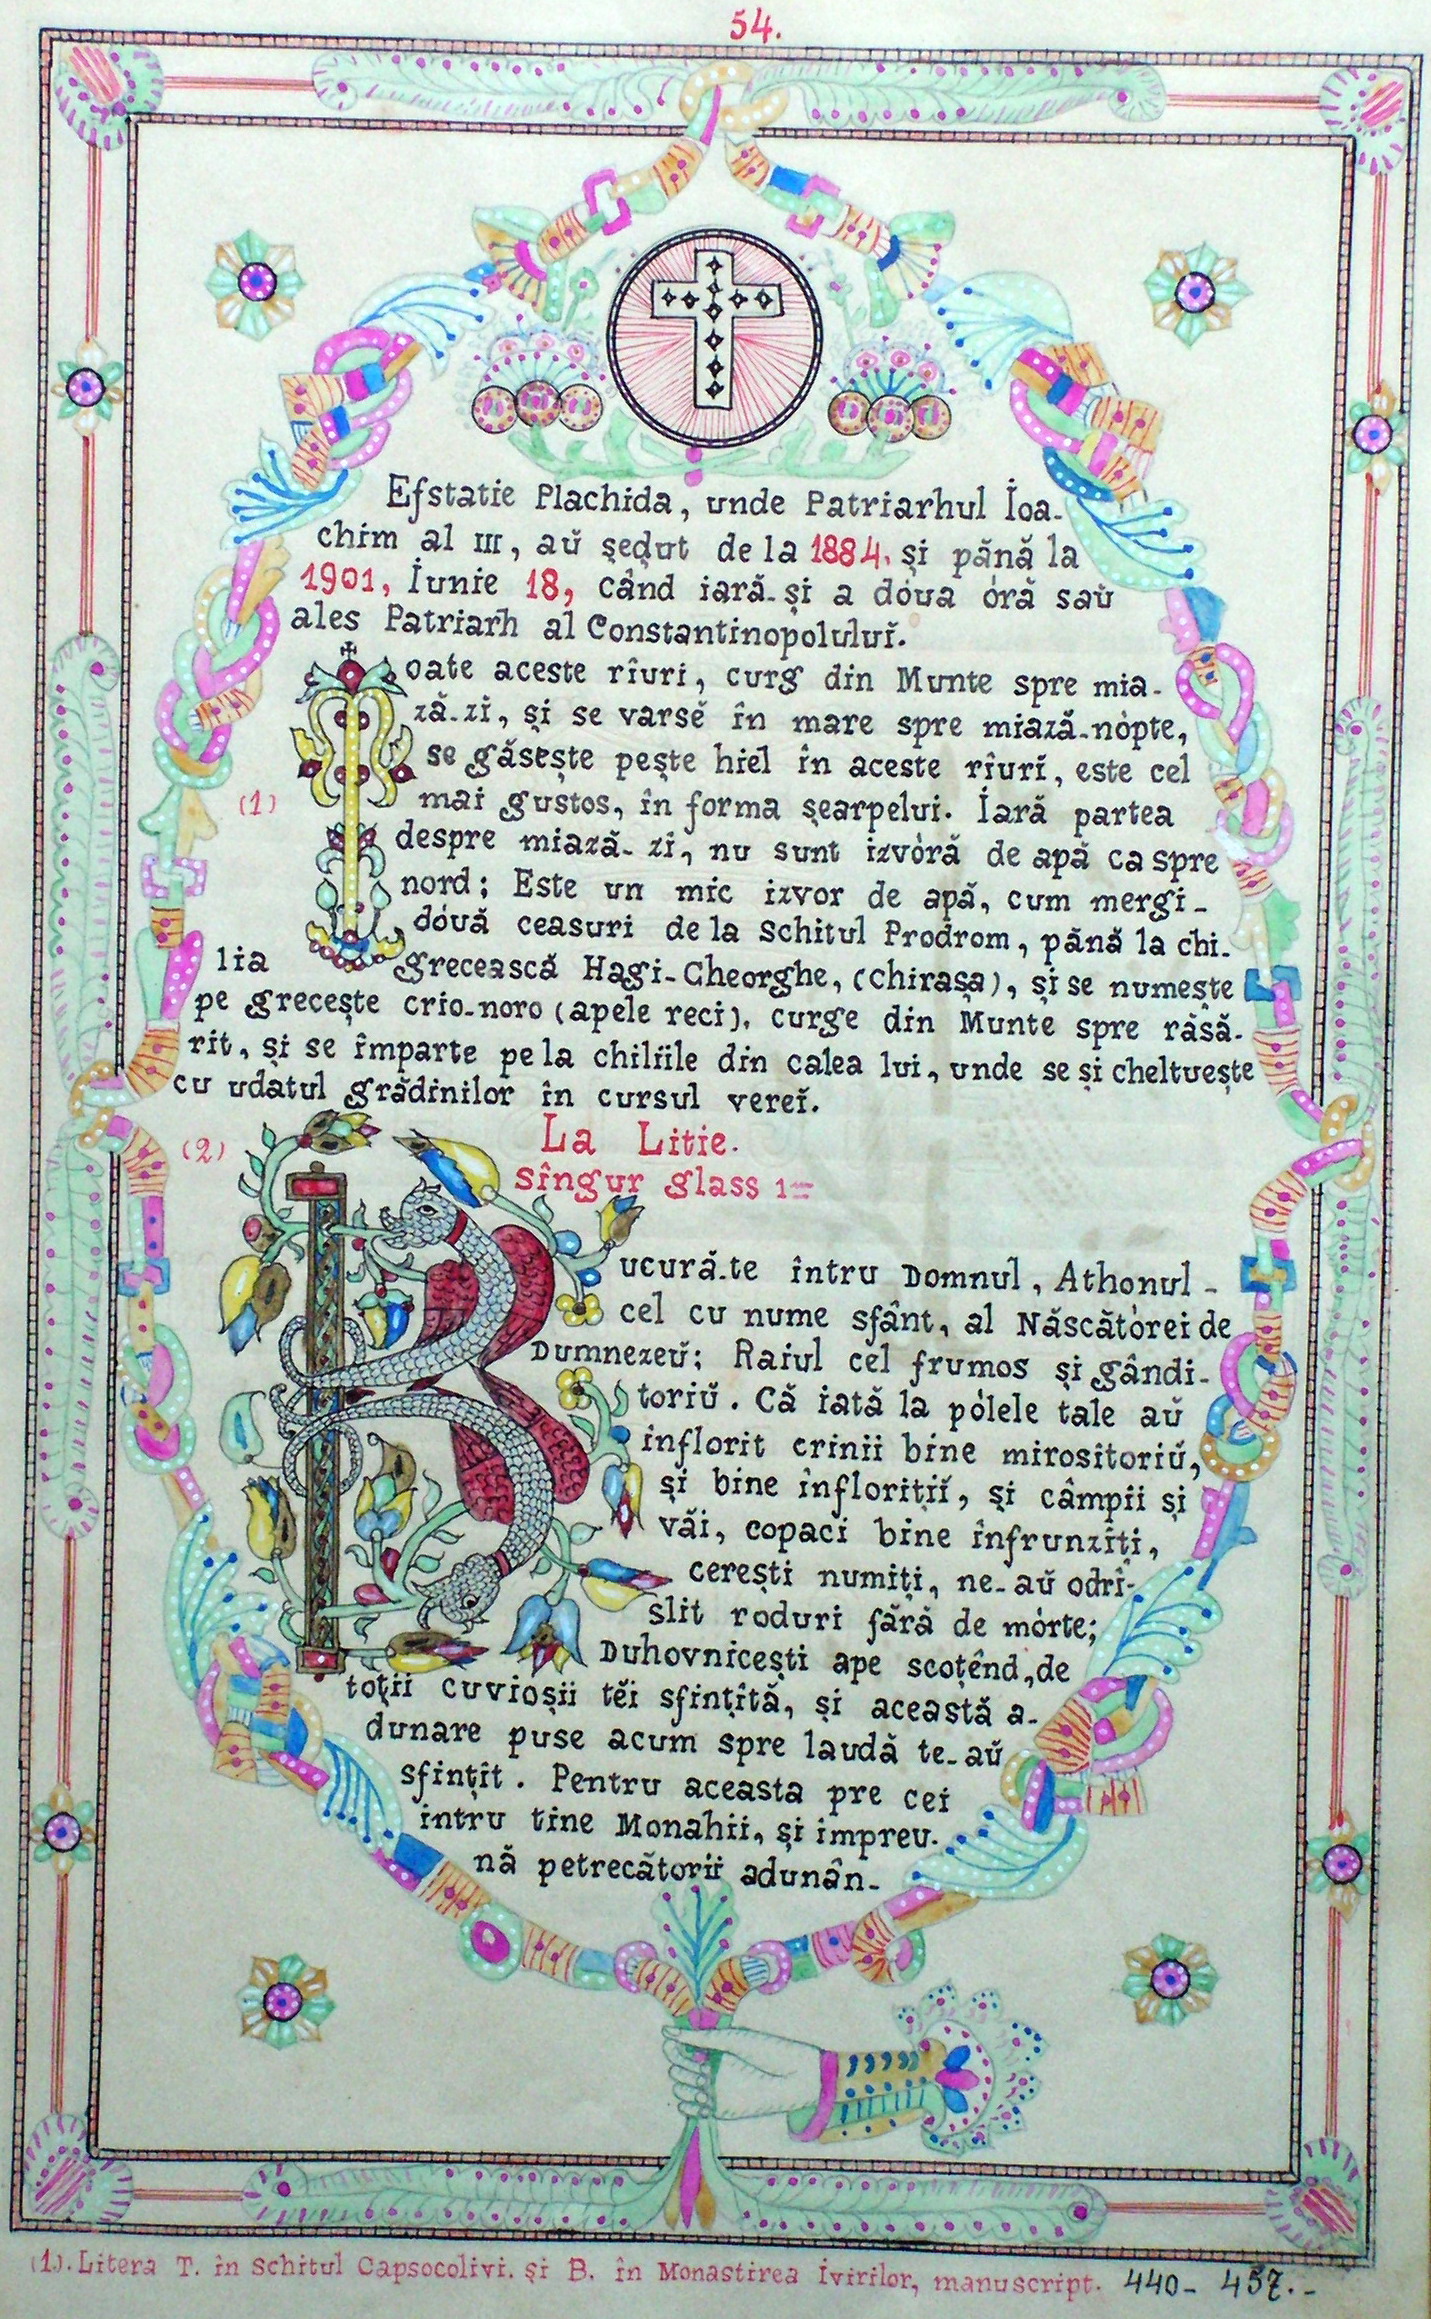 54.
Efstatie Plachida, unde Patriarhul Ioa-
chim al III, aŭ șeḑut de la 1884. și până la
1901, Iunie 18, când iară-și a dóua óră saŭ
ales Patriarh al Constantinopolului̇̆.
Toate aceste rîuri, curg din Munte spre mia-
ză-zi, și se varsĕ în mare spre miază-nópte,
se găsește pește hiel în aceste rîurĭ, este cel
(1) mai gustos, în forma șearpelui. Iară partea
despre miază-zi, nu sunt izvóră de apă ca spre
nord; Este un mic izvor de apă, cum mergi-
dóuă ceasuri de la Schitul Prodrom, până la chi-
lia grecească Hagi-Gheorghe, (chirașa), și se numește
pe grecește crio-noro (apele reci), curge din Munte spre răsă-
rit, și se împarte pe la chiliile din calea lui, unde se și cheltuește
cu udatul grădinilor în cursul vereĭ.
(2) La Litie.
Sîngur glass 1=
Bucură-te întru Domnul, Athonul-
cel cu nume sfânt, al Născătórei de
Dumnezeŭ; Raiul cel frumos și gândi-
toriŭ. Că iată la pólele tale aŭ
înflorit crinii bine mirositoriŭ,
și bine înflorițiĭ, și câmpii și
văi, copaci bine înfrunziți,
cerești numiți, ne-aŭ odrî-
slit roduri fără de mórte;
Duhovnicești ape scoțênd, de
toții cuvioșii tĕi sfințîtă, și această a-
dunare puse acum spre laudă te-aŭ
sfințît. Pentru aceasta pre cei
intru tine Monahii, și impreu-
nă petrecătorii adunân-
(1). Litera T. în Schitul Capsocolivi. și B. în Monastirea Ivirilor, manuscript. 440- 457.-